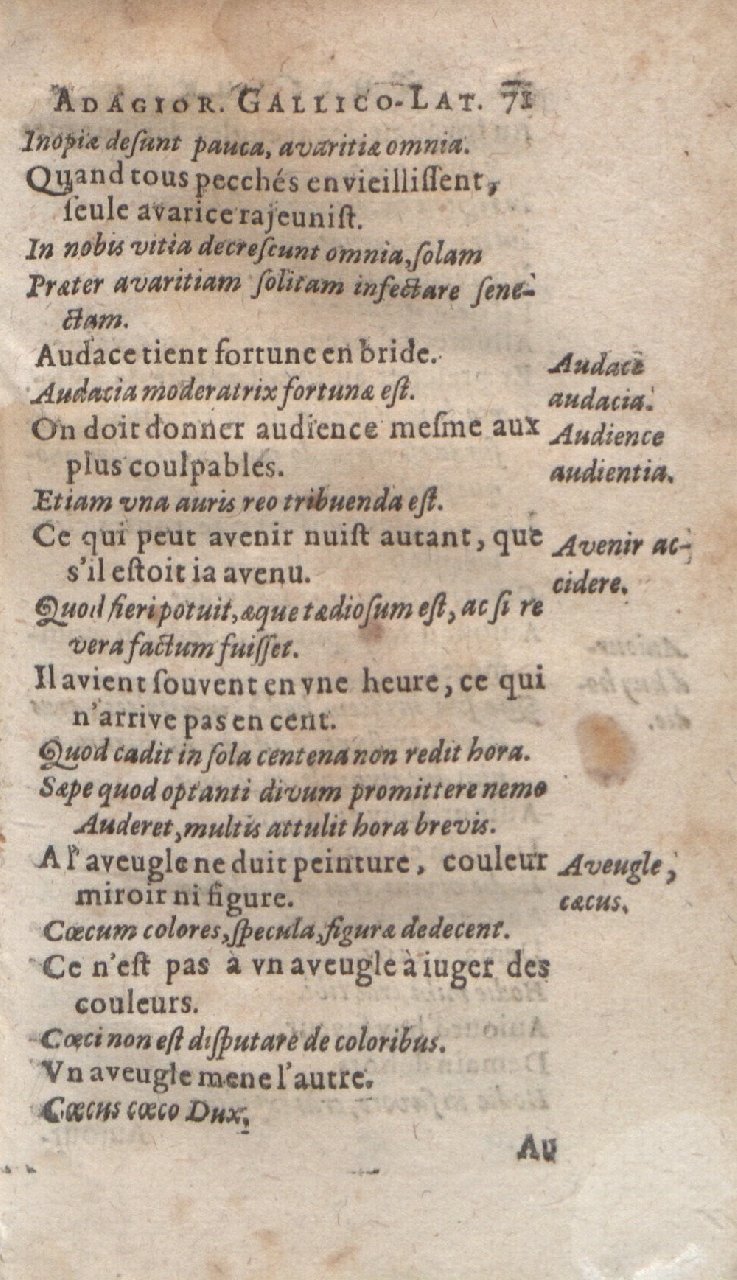 ADAGIOR. GALLICO-LAT. 71
Inopiæ desunt pauca, avaritiæ omnia.
Quand tous pecchés envieillissent,
seule avarice rajeunist.
In nobis vitia decrescunt omnia, solam
Præter avaritiam solitam infectare sene-
ctam.
Audace tient fortune en bride.
Audace
Audacia moderatrix fortunæ est.
audacia.
On doit donner audience mesme aux
Audience
plus coulpables.
audientia.
Etiam vna auris reo tribuenda est.
Ce qui peut avenir nuist autant, que
Avenir ac-
s'il estoit ia avenu.
cidere.
Quod fieri potuit, æque tædiosum est, ac si re
vera factum fuisset.
Il avient souvent en vne heure, ce qui
n'arrive pas en cent.
Quod cadit in sola centena non redit hora.
Sæpe quod optanti divum promittere nemo
Auderet, multis attulit hora brevis.
A l'aveugle ne duit peinture, couleur
Aveugle,
miroir ni figure.
cæcus.
Cœcum colores, specula, figuræ dedecent.
Ce n'est pas à vn aveugle à iuger des
couleurs.
Cœci non est disputare de coloribus.
Vn aveugle mene l'autre.
Cœcus cœco Dux.
Au